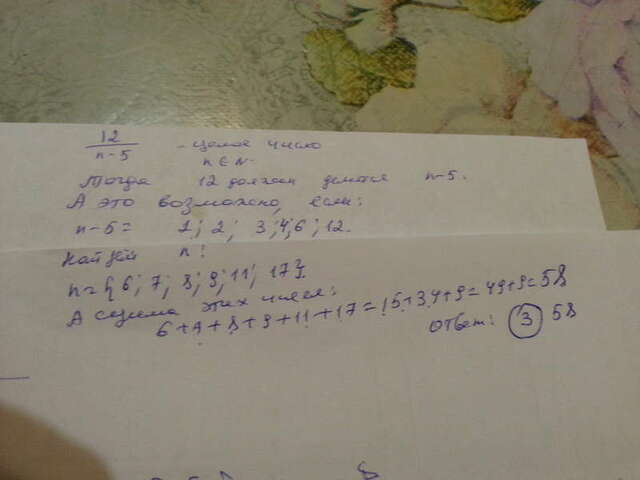 12
n-5
- целое число
n ∈ N
Тогда 12 должен делится n-5.
А это возможно, если:
n-5= 1; 2; 3;4;6;12.
Найдём n:
n={6; 7; 8; 9; 11; 17}.
А сумма этих чисел:
6+7+8+9+11+17=15+34+9=49+9=58
Ответ: 3 58